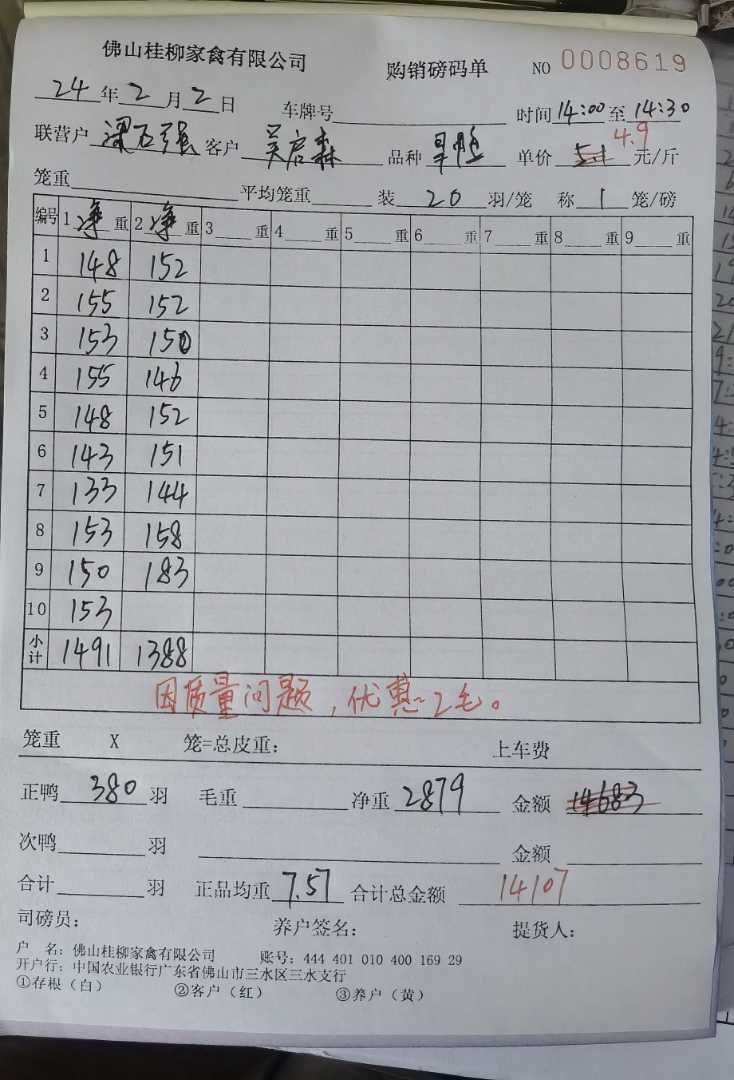 佛山桂柳家禽有限公司 购销磅码单 NO 0008619
24年2月2日 车牌号 时间14:00至14:30
联营户 梁石强 客户 吴启森 品种 旱鸭 单价 5.1 4.9 元/斤
笼重 平均笼重 装 20 羽/笼 称 1 笼/磅
编号 1净重 2净重 3 重 4 重 5 重 6 重 7 重 8 重 9 重
1 148 152
2 155 152
3 153 150
4 155 146
5 148 152
6 143 151
7 133 144
8 153 158
9 150 183
10 153
小计 1491 1388
因质量问题,优惠2毛。
笼重 X 笼=总皮重: 上车费
正鸭 380 羽 毛重 净重 2879 金额 14683
次鸭 羽 金额
合计 羽 正品均重 7.57 合计总金额 14107
司磅员: 养户签名: 提货人:
户 名: 佛山桂柳家禽有限公司 账号: 444 401 010 400 169 29
开户行: 中国农业银行广东省佛山市三水区三水支行
①存根(白) ②客户(红) ③养户(黄)